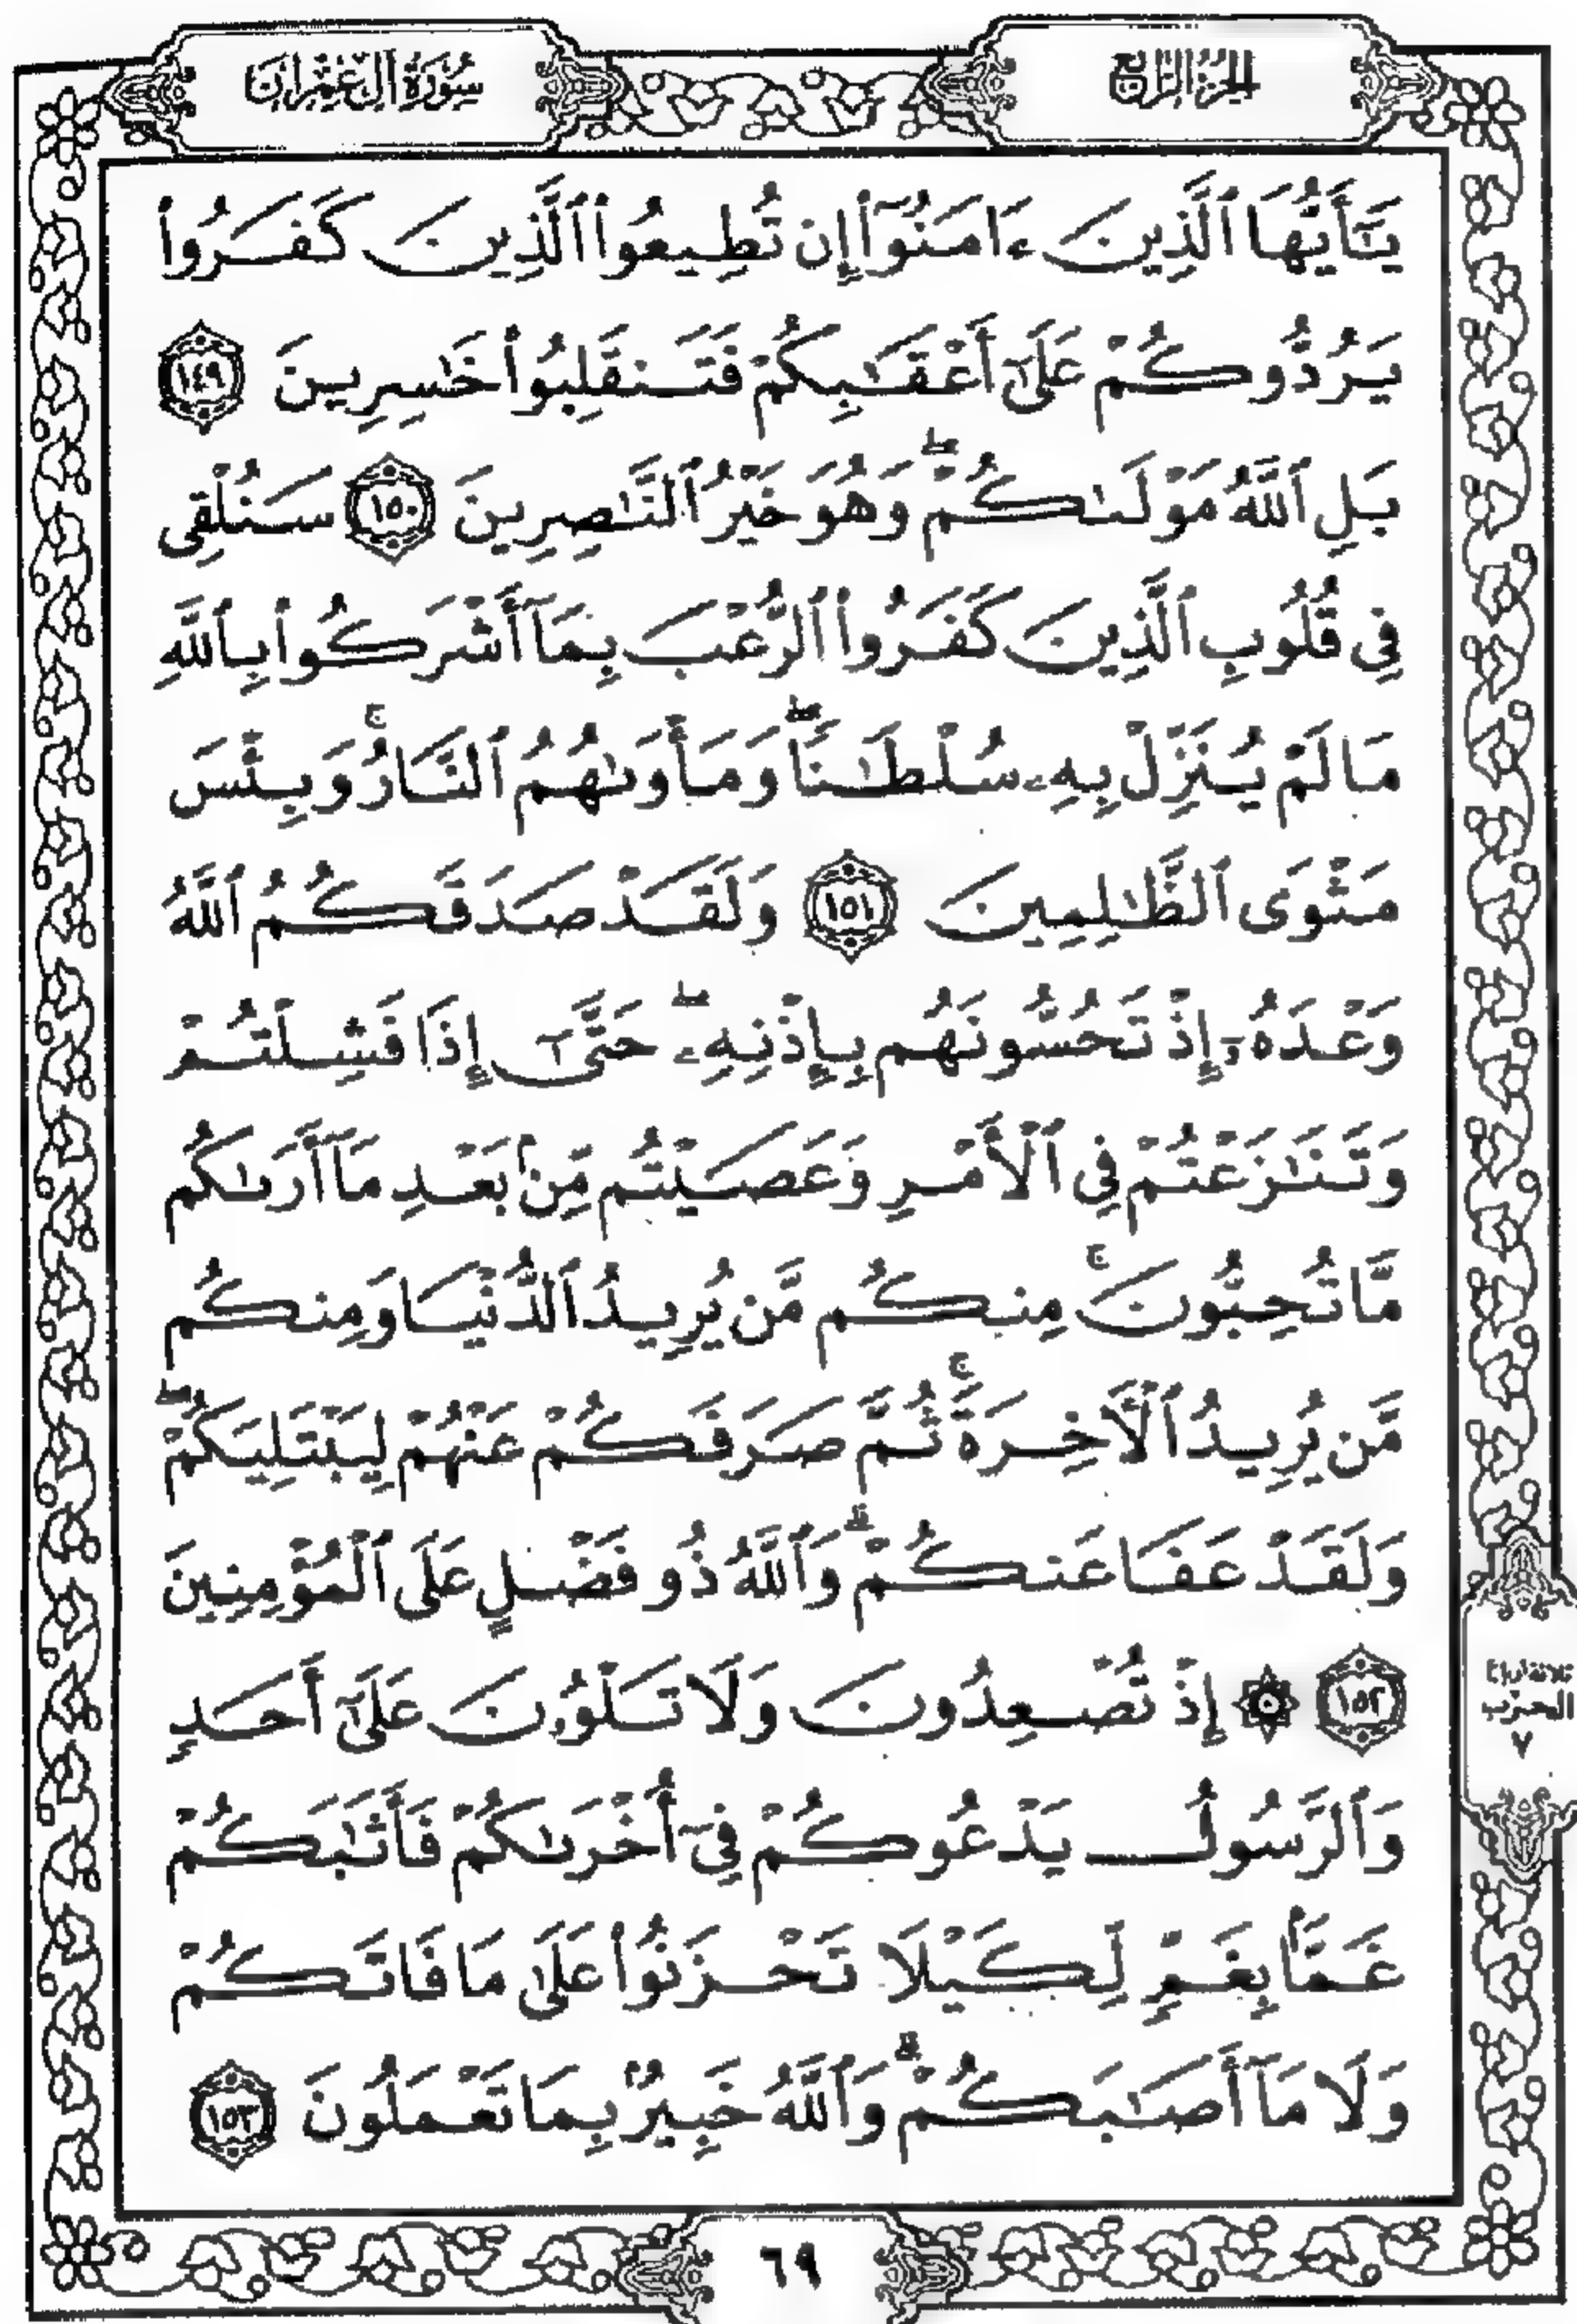 الجزء الرابع
سُورَةُ آلِ عِمْرَانَ
يَٰٓأَيُّهَا ٱلَّذِينَ ءَامَنُوٓا۟ إِن تُطِيعُوا۟ ٱلَّذِينَ كَفَرُوا۟
يَرُدُّوكُمْ عَلَىٰٓ أَعْقَٰبِكُمْ فَتَنقَلِبُوا۟ خَٰسِرِينَ ١٤٩
بَلِ ٱللَّهُ مَوْلَىٰكُمْ ۖ وَهُوَ خَيْرُ ٱلنَّٰصِرِينَ ١٥٠ سَنُلْقِى
فِى قُلُوبِ ٱلَّذِينَ كَفَرُوا۟ ٱلرُّعْبَ بِمَآ أَشْرَكُوا۟ بِٱللَّهِ
مَا لَمْ يُنَزِّلْ بِهِۦ سُلْطَٰنًا ۖ وَمَأْوَىٰهُمُ ٱلنَّارُ ۚ وَبِئْسَ
مَثْوَى ٱلظَّٰلِمِينَ ١٥١ وَلَقَدْ صَدَقَكُمُ ٱللَّهُ
وَعْدَهُۥٓ إِذْ تَحُسُّونَهُم بِإِذْنِهِۦ ۖ حَتَّىٰٓ إِذَا فَشِلْتُمْ
وَتَنَٰزَعْتُمْ فِى ٱلْأَمْرِ وَعَصَيْتُم مِّنۢ بَعْدِ مَآ أَرَىٰكُم
مَّا تُحِبُّونَ ۚ مِنكُم مَّن يُرِيدُ ٱلدُّنْيَا وَمِنكُم
مَّن يُرِيدُ ٱلْءَاخِرَةَ ۚ ثُمَّ صَرَفَكُمْ عَنْهُمْ لِيَبْتَلِيَكُمْ ۖ
وَلَقَدْ عَفَا عَنكُمْ ۗ وَٱللَّهُ ذُو فَضْلٍ عَلَى ٱلْمُؤْمِنِينَ
١٥٢ ۞ إِذْ تُصْعِدُونَ وَلَا تَلْوُۥنَ عَلَىٰٓ أَحَدٍ
وَٱلرَّسُولُ يَدْعُوكُمْ فِىٓ أُخْرَىٰكُمْ فَأَثَٰبَكُمْ
غَمًّۢا بِغَمٍّ لِّكَيْلَا تَحْزَنُوا۟ عَلَىٰ مَا فَاتَكُمْ
وَلَا مَآ أَصَٰبَكُمْ ۗ وَٱللَّهُ خَبِيرٌۢ بِمَا تَعْمَلُونَ ١٥٣
ثلاثة أرباع
الحزب
٧
٦٩